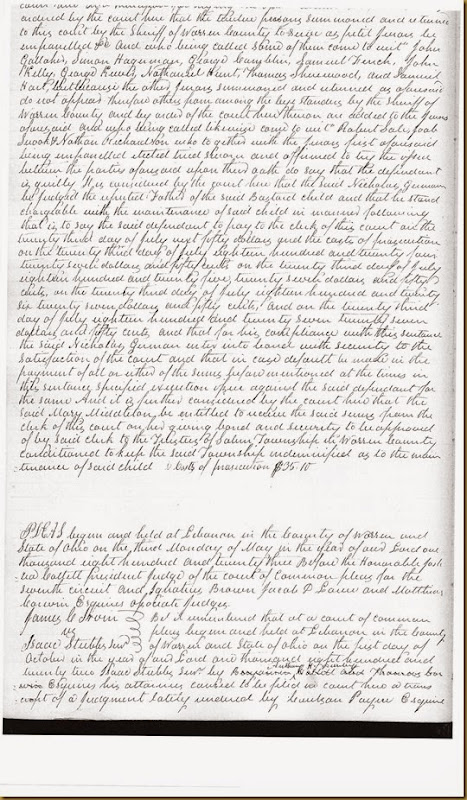 ordered by the court here that the twelve persons summoned and returned
to this court by the Sheriff of Warren County to serve as petit jurors be
impannelled &c And who being called some of them come to wit John
Gallahe, Simon Hageman, George Camblin, Samuel Dench, John
Kelly, George Kuell, Nathaniel Hunt, Thomas Sherwood, and Samuel
Hart, but because the other jurors summoned and returned as aforesaid
do not appear therefore others from among the bystanders by the sheriff of
Warren County and by order of the court here thereon are added to the jurors
aforesaid and who being called likewise come to wit Robert Sale, Joab
& Nathan Richardson who to gether with the jurors first aforesaid
being impannelled elected tried sworn and affirmed to try the issue
between the parties aforesaid upon their oath do say that the defendant
is guilty It is considered by the court here that the said Nicholas German
be judged the reputed Father of the said Bastard child and that he stand
chargeable with the maintenance of said child in manner following
that is, to say the said defendant to pay to the clerk of this court on the
twenty third day of July next fifty dollars and the costs of prosecution
on the twenty third day of July eighteen hundred and twenty four
twenty seven dollars and fifty cents on the twenty third day of July
eighteen hundred and twenty five, twenty seven dollars and fifty
cents, on the twenty third day of July eighteen hundred and twenty
six twenty seven dollars and fifty cents, and on the twenty third
day of July eighteen hundred and twenty seven twenty seven
dollars and fifty cents, and that for his compliance with this sentence
the said Nicholas German enter into bond with security to the
satisfaction of the court and that in case default be made in the
payment of all or either of the sums before mentioned at the times in
this sentence specified, execution issue against the said defendant for
the same And it is further considered by the court here that the
said Mary Middleton, be entitled to receive the said sums from the
clerk of this court on her giving bond and security to be approved
of by said clerk to the Trustees of Salem Township in Warren County
conditioned to keep the said Township indemnified as to the main
tenance of said child Costs of prosecution $35.10
PLEAS begun and held at Lebanon in the County of Warren and
State of Ohio on the third Monday of May in the year of our Lord one
thousand eight hundred and twenty three Before the Honorable Josh
ua Collett president judge of the court of Common pleas for the
seventh circuit and Ignatius Brown Jacob D Lowe and Matthias
Corwin Esquires associate judges
James C Irvin Be it remembered that at a court of common
vs pleas begun and held at Lebanon in the County
Isaac Stubbs Senr of Warren and State of Ohio on the first day of
October in the year of our Lord one thousand eight hundred and
twenty two Isaac Stubbs Senr by and Thomas Cor
win Esquires his attornies caused to be filed in court here a trans
cript of a judgment lately rendered by Payne Esquire